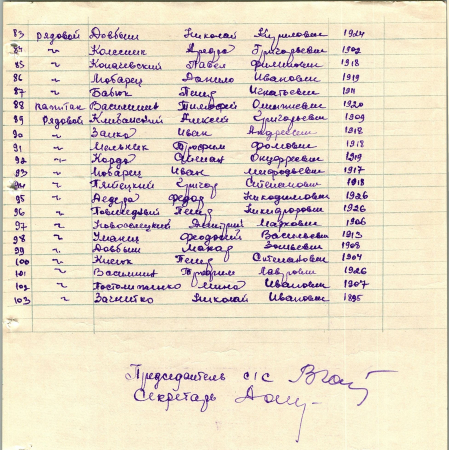 83 рядовой Довбыш Николай Кирилович 1924
84 ~ Колесник Андрей Григорьевич 1902
85 ~ Павел Филиппович 1918
86 ~ Мовварец Данило Иванович 1919
87 ~ Бабюк Петр Игнатьевич 1911
88 капитан Василишин Тимофей 1920
89 Рядовой Алексей Григорьевич 1909
90 ~ Заика Иван Андреевич 1918
91 ~ Мельник Трофим Фомович 1918
92 ~ Кордо Степан Онуфреевич 1919
93 ~ Иван Мефодьевич 1917
94 ~ Григор Степанович 1918
95 ~ Федор Никодимович 1926
96 ~ Петр Никифорович 1926
97 ~ Новоселецкий Дмитрий Маркович 1906
98 ~ Уманец Феодосий Васильевич 1913
99 ~ Довбыш Макар 1908
100 ~ Кисюк Петр Степанович 1904
101 ~ Василишин Трофим Лаврович 1926
102 ~ Мина Иванович 1907
103 ~ Николай Иванович 1895
Председатель с/с
Секретарь